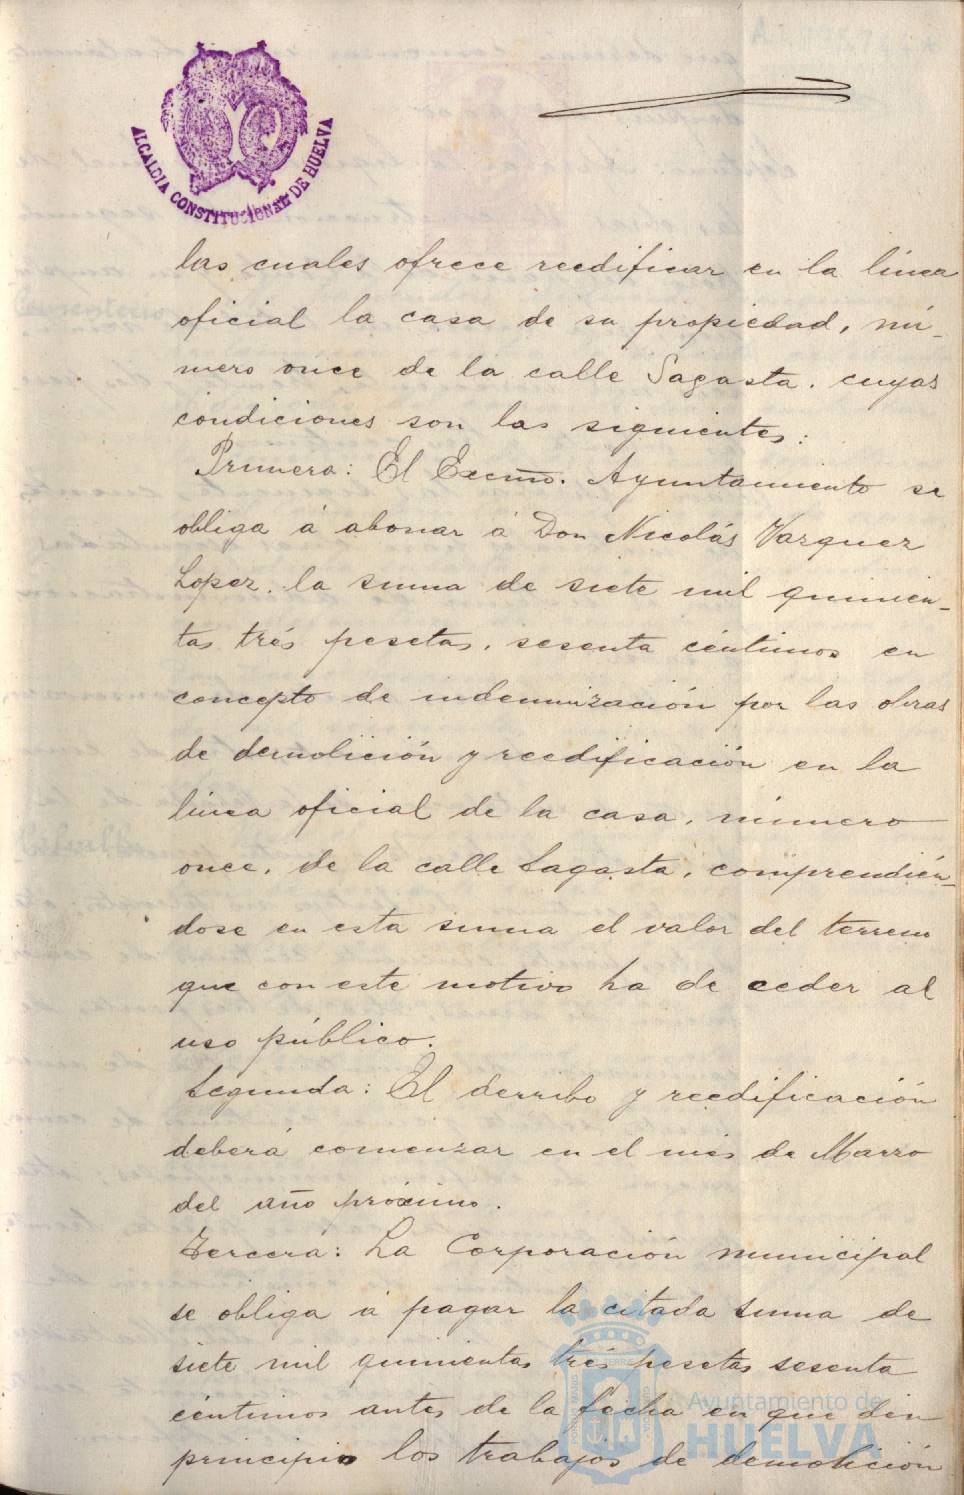 ALCALDIA CONSTITUCIONAL DE HUELVA
las cuales ofrece reedificar en la línea
oficial la casa de su propiedad, nú-
mero once de la calle Sagasta, cuyas
condiciones son las siguientes:
Primera: El Excmo. Ayuntamiento se
obliga á abonar á Don Nicolás Vazquez
Lopez, la suma de siete mil quinien-
tas trés pesetas, sesenta céntimos en
concepto de indemnización por las obras
de demolición y reedificación en la
línea oficial de la casa, número
once, de la calle Sagasta, comprendién-
dose en esta suma el valor del terreno
que con este motivo ha de ceder al
uso público.
Segunda: El derribo y reedificación
deberá comenzar en el més de Marzo
del año próximo.
Tercera: La Corporación municipal
se obliga á pagar la citada suma de
siete mil quinientas trés pesetas sesenta
céntimos antes de la fecha en que den
principio los trabajos de demolición
Ayuntamiento de
HUELVA